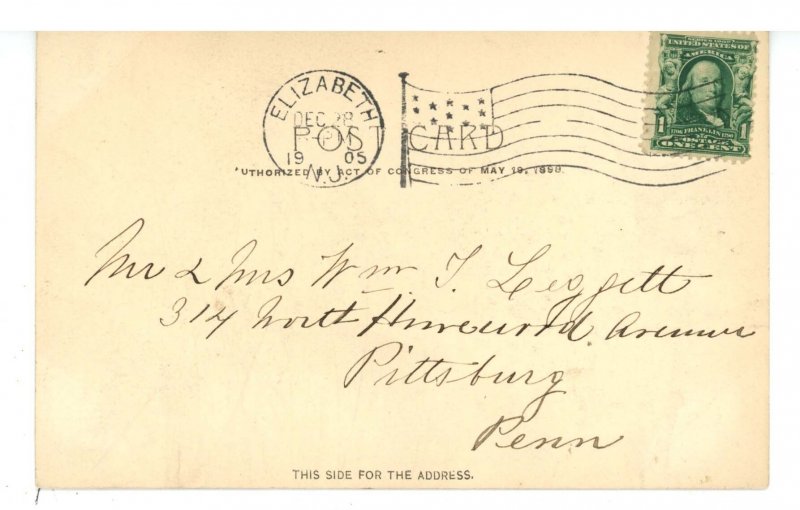 ELIZABETH
DEC 28
1905
N.J.
POST CARD
AUTHORIZED BY ACT OF CONGRESS OF MAY 19, 1898.
UNITED STATES OF AMERICA
1 FRANKLIN 1
POSTAGE
ONE CENT
Mr & Mrs Wm. T. Leggett
314 North Homewood Avenue
Pittsburg
Penn
THIS SIDE FOR THE ADDRESS.